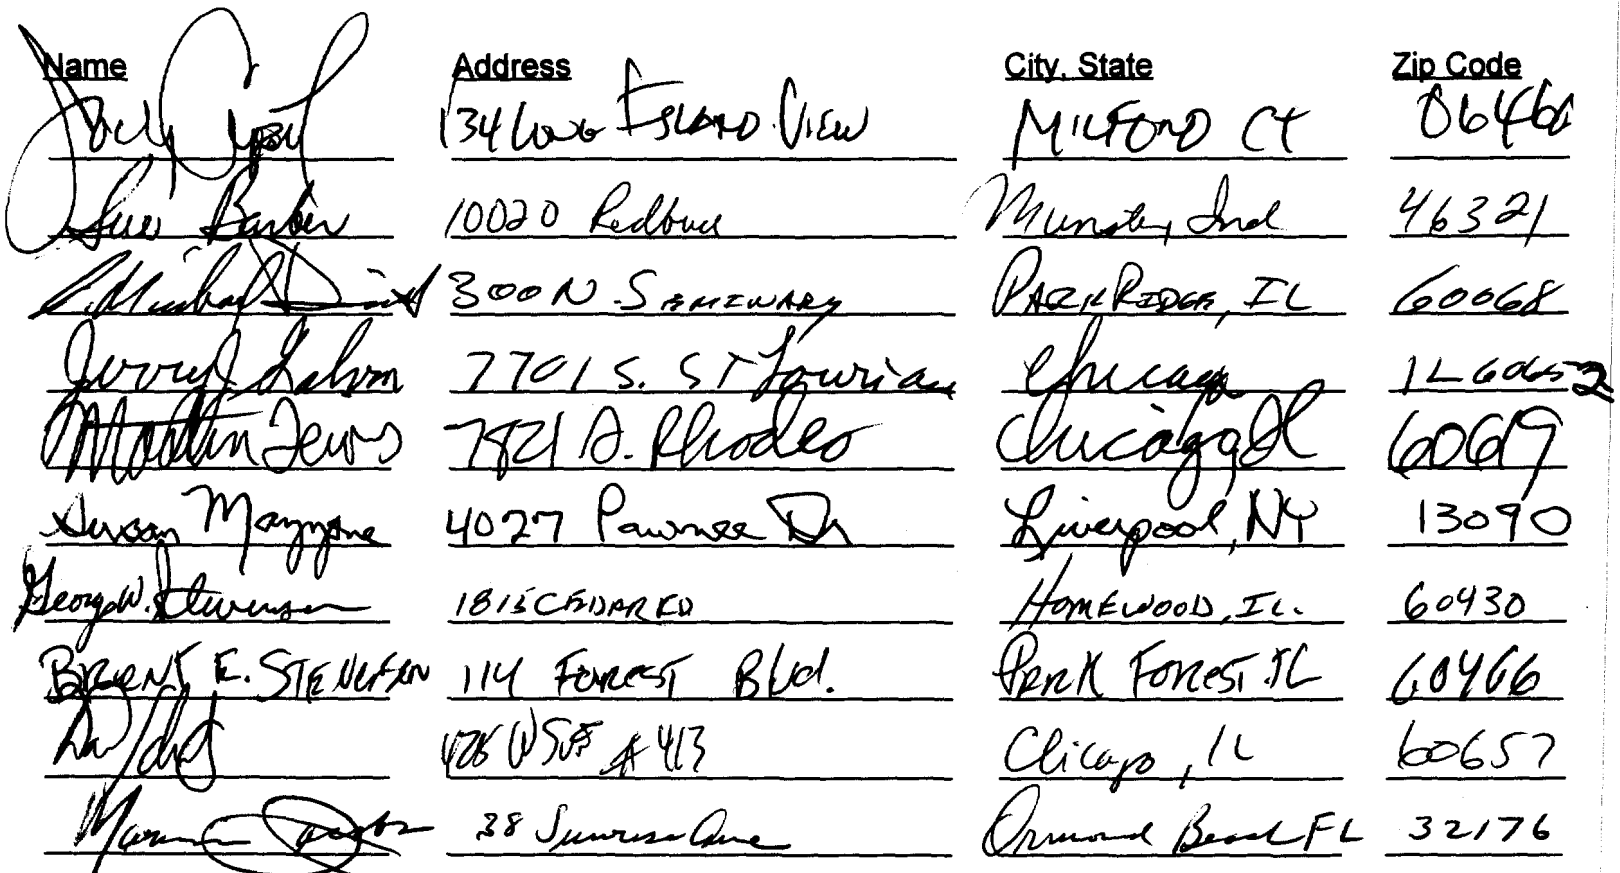 Name Address City, State Zip Code
134 Long Island View Milford CT 06460
Sue Barber 10020 Redbud Munster, Ind 46321
Michael 300 N. Seminary Park Ridge, IL 60068
Jerry J. 7701 S. St Louis Chicago IL 60652
Martin Lewis 7821 S. Rhodes Chicago, Il 60619
Susan Mazzone 4027 Pawnee Dr Liverpool, NY 13090
George W. Stevenson 1815 CEDAR RD HOMEWOOD, IL. 60430
BRENT E. STEVENSON 114 FOREST Blvd. PARK FOREST. IL 60466
426 W Surf #413 Chicago, IL 60657
38 Sunrise Ave Ormond Beach FL 32176